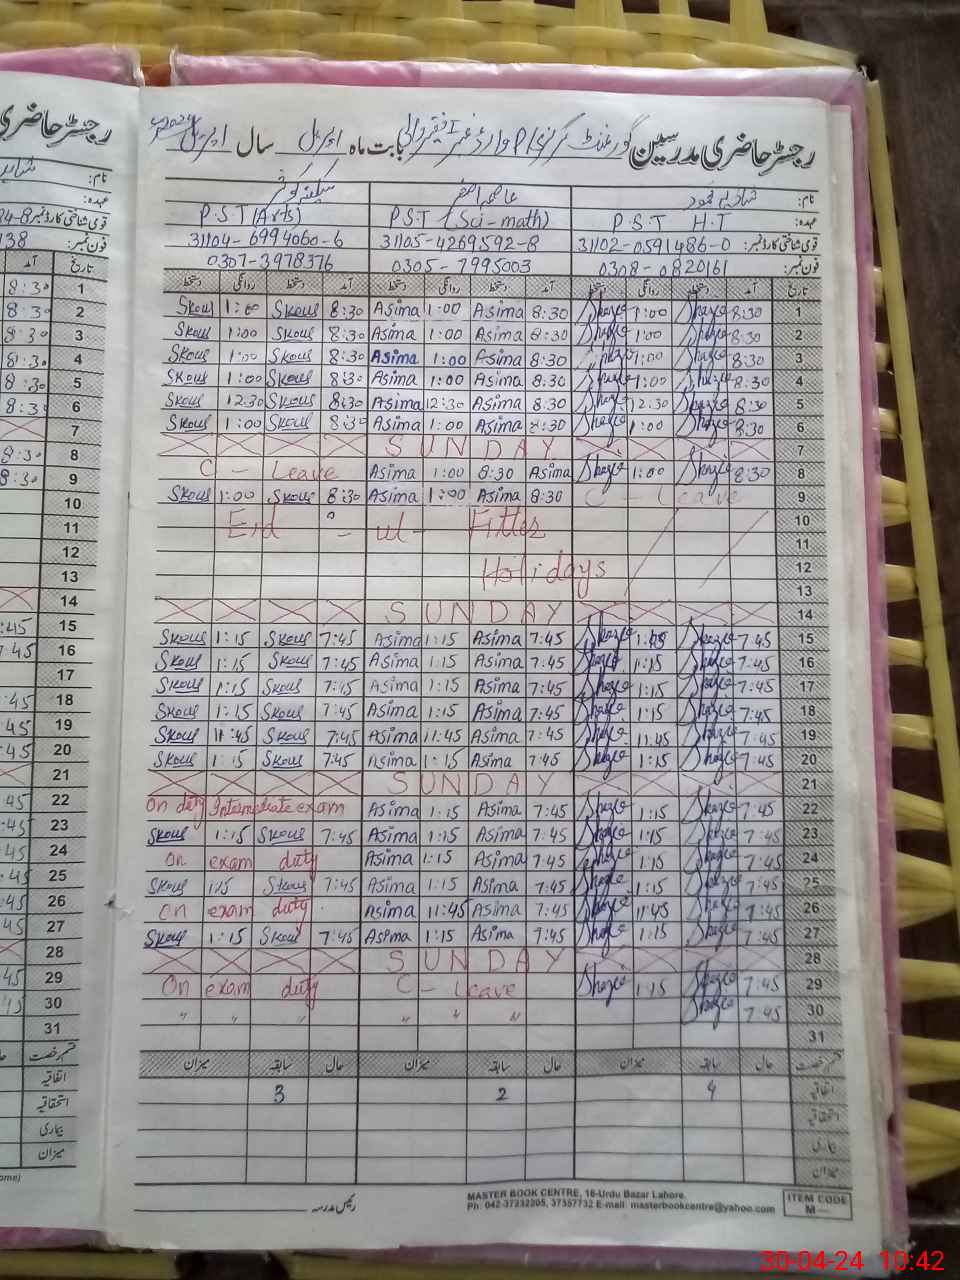 رجسٹر حاضری مدرسین گورنمنٹ گرلز P/S وارڈ نمبر بابت ماہ اپریل سال
نام: شازیہ محمود عاصمہ اصغر سکینہ کوثر
عہدہ: P.S.T H.T P.S.T (Sci-math) P.S.T (Arts)
قومی شناختی کارڈ نمبر: 31102-0591486-0 31105-4269592-8 31104-6994060-6
فون نمبر: 0308-0820161 0305-7995003 0307-3978376
تاریخ آمد دستخط روانگی دستخط آمد دستخط روانگی دستخط آمد دستخط روانگی دستخط
Skous 1:00 Skous 8:30 Asima 1:00 Asima 8:30 Shazia 1:00 Shazia 8:30 1
Skous 1:00 Skous 8:30 Asima 1:00 Asima 8:30 Shazia 1:00 Shazia 8:30 2
Skous 1:00 Skous 8:30 Asima 1:00 Asima 8:30 Shazia 1:00 Shazia 8:30 3
Skous 1:00 Skous 8:30 Asima 1:00 Asima 8:30 Shazia 1:00 Shazia 8:30 4
Skous 12:30 Skous 8:30 Asima 12:30 Asima 8:30 Shazia 12:30 Shazia 8:30 5
Skous 1:00 Skous 8:30 Asima 1:00 Asima 8:30 Shazia 1:00 Shazia 8:30 6
SUNDAY 7
C - Leave Asima 1:00 8:30 Asima Shazia 1:00 Shazia 8:30 8
Skous 1:00 Skous 8:30 Asima 1:00 Asima 8:30 C - Leave 9
Eid - ul - Fitter 10
11
Holidays 12
13
SUNDAY 14
Skous 1:15 Skous 7:45 Asima 1:15 Asima 7:45 Shazia 1:15 Shazia 7:45 15
Skous 1:15 Skous 7:45 Asima 1:15 Asima 7:45 Shazia 1:15 Shazia 7:45 16
Skous 1:15 Skous 7:45 Asima 1:15 Asima 7:45 Shazia 1:15 Shazia 7:45 17
Skous 1:15 Skous 7:45 Asima 1:15 Asima 7:45 Shazia 1:15 Shazia 7:45 18
Skous 11:45 Skous 7:45 Asima 11:45 Asima 7:45 Shazia 11:45 Shazia 7:45 19
Skous 1:15 Skous 7:45 Asima 1:15 Asima 7:45 Shazia 1:15 Shazia 7:45 20
SUNDAY 21
On duty Intermediate exam Asima 1:15 Asima 7:45 Shazia 1:15 Shazia 7:45 22
Skous 1:15 Skous 7:45 Asima 1:15 Asima 7:45 Shazia 1:15 Shazia 7:45 23
On exam duty Asima 1:15 Asima 7:45 Shazia 1:15 Shazia 7:45 24
Skous 1:15 Skous 7:45 Asima 1:15 Asima 7:45 Shazia 1:15 Shazia 7:45 25
On exam duty Asima 11:45 Asima 7:45 Shazia 11:45 Shazia 7:45 26
Skous 1:15 Skous 7:45 Asima 1:15 Asima 7:45 Shazia 1:15 Shazia 7:45 27
SUNDAY 28
On exam duty C - Leave Shazia 1:15 Shazia 7:45 29
" " " " " " Shazia 7:45 30
31
قسم رخصت حال سابقہ میزان حال سابقہ میزان حال سابقہ میزان
اتفاقیہ 4 2 3
استحقاقیہ
بیماری
میزان
رئیس مدرسہ
MASTER BOOK CENTRE, 16-Urdu Bazar Lahore.
Ph: 042-37232205, 37357732 E-mail: masterbookcentre@yahoo.com
ITEM CODE
M—
30-04-24 10:42